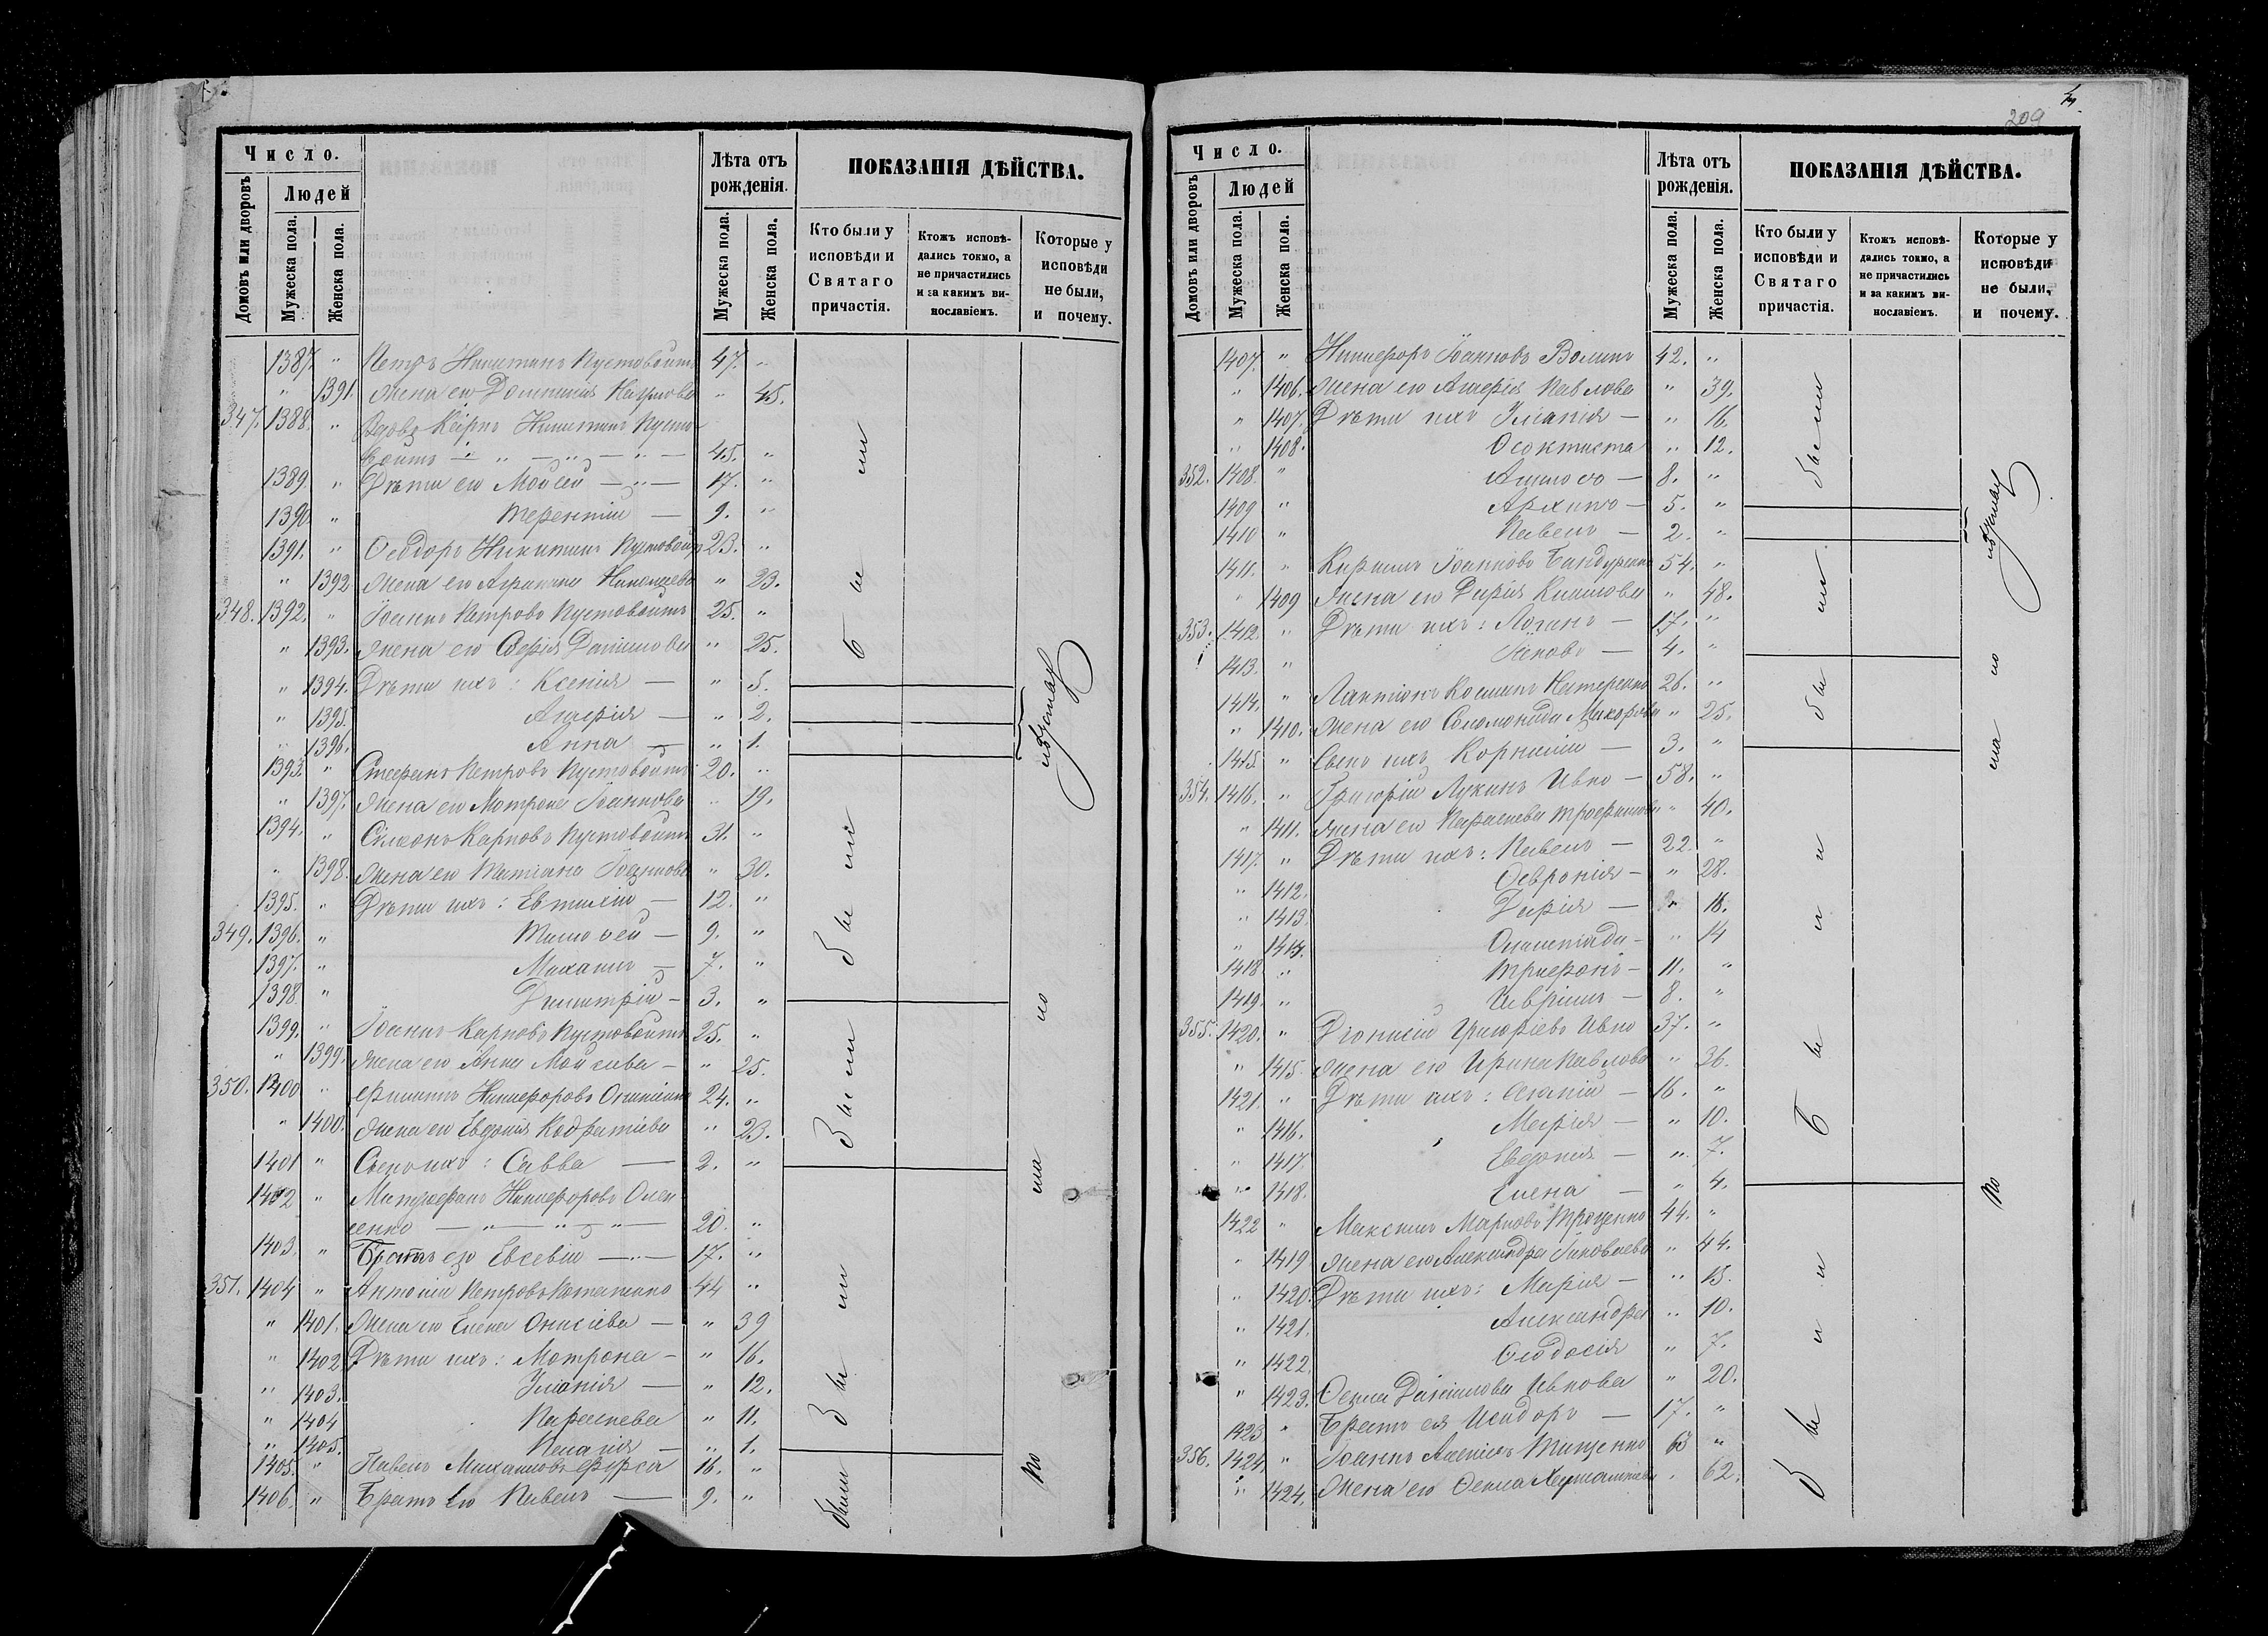 Число.
Домовъ или дворовъ
Людей
Мужеска пола.
Женска пола.
Лѣта отъ рожденія.
Мужеска пола.
Женска пола.
ПОКАЗАНІЯ ДѢЙСТВА.
Кто были у исповѣди и Святаго причастія.
Ктожъ исповѣ-дались токмо, а не причастились и за какимъ ви-нословіемъ.
Которые у исповѣди не были, и почему.
1387. " Петръ Никитинъ Пустовойтъ 47. "
" 1391. Жена его Домникія Наумова " 45.
347. 1388. " Вдовъ Кирилъ Никитинъ Пусто
войтъ — " — " — " — 45. "
1389. " Дѣти его Мойсей — " — 17. "
1390. " Терентій — 9. "
1391. " Ѳеодоръ Никитинъ Пустовойтъ 23. "
" 1392 Жена его Агрипина Николаева " 23.
348. 1392. " Іоаннъ Петровъ Пустовойтъ 25. "
" 1393. Жена его Софія Даніилова " 25.
" 1394. Дѣти ихъ: Ксенія — " 5.
" 1395. Агафія — " 2.
" 1396. Анна — " 1.
1393. " Стефанъ Петровъ Пустовойтъ 20. "
" 1397. Жена его Мотрона Іоаннова " 19.
1394. " Сѵмеонъ Карповъ Пустовойтъ 31. "
" 1398. Жена его Татіана Іоаннова " 30.
1395. " Дѣти ихъ: Евтихій — 12. "
349. 1396. " Тимоѳей — 9. "
1397. " Михаилъ — 7. "
1398. " Димитрій — 3. "
1399. " Іоаннъ Карповъ Пустовойтъ 25. "
" 1399. Жена его Анна Мойсеева — " 25.
350. 1400 " Филиппъ Никифоровъ 24. "
" 1400. Жена его Евдокія Кодратіева " 23.
1401 " Сынъ ихъ: Савва — 2. "
1402 " Митрофанъ Никифоровъ Олек
сенко — " — " — " — 20. "
1403. " Братъ его Евсевій — " — 17. "
351. 1404 " Антоній Петровъ 44 "
" 1401. Жена его Елена Онисіева — " 39
" 1402 Дѣти ихъ: Мотрона — " 16.
" 1403. Іуліанія — " 12.
" 1404 Параскева " 11.
" 1405. Пелагія — " 1.
1405. " Павелъ Михаиловъ Фурса 16. "
1406. " Братъ его Павелъ — 9. "
Были
Были
Были
Были
Были
Были
по мало лѣтству
209
Число.
Домовъ или дворовъ
Людей
Мужеска пола.
Женска пола.
Лѣта отъ рожденія.
Мужеска пола.
Женска пола.
ПОКАЗАНІЯ ДѢЙСТВА.
Кто были у исповѣди и Святаго причастія.
Ктожъ исповѣ-дались токмо, а не причастились и за какимъ ви-нословіемъ.
Которые у исповѣди не были, и почему.
1407. " Никифоръ Іоанновъ Воликъ 42. "
" 1406. Жена его Агафія Павлова " 39.
" 1407. Дѣти ихъ Іуліанія — " 16.
" 1408. Ѳеоктиста " 12.
352. 1408. " 8. "
1409 " Архипъ — 5. "
1410 " Павелъ — 2. "
1411. " Кириллъ Іоанновъ Бандурка 54. "
" 1409 Жена его Дарія Климова " 48.
353. 1412. " Дѣти ихъ: Логинъ — 17. "
1413. " Іаковъ — 4. "
1414. " Лактіонъ Косминъ 26. "
" 1410. Жена его Соломонида " 25.
1415. " Сынъ ихъ Корнилій — 3. "
354. 1416. " Григорій Лукинъ Ивко — 58. "
" 1411. Жена его Параскева Трофимова " 40.
1417. " Дѣти ихъ: Павелъ — 22. "
" 1412. Февронія — " 28.
" 1413. Дарія — " 18.
" 1414. Олимпіада — " 14
1418 " Трифонъ — 11. "
1419. " Гавріилъ — 8. "
355. 1420. " Діонисій Григоріевъ Ивко 37. "
" 1415. Жена его Ирина Павлова " 36.
1421. " Дѣти ихъ: — 16. "
" 1416. Марія — " 10.
" 1417. Евдокія — " 7.
" 1418. Елена — " 4.
1422 " Максимъ Марковъ Троценко 44. "
" 1419 Жена его Александра Іаковлева " 44.
" 1420. Дѣти ихъ: Марія — " 15.
" 1421. Александра " 10.
" 1422. Ѳеодосія " 7.
" 1423. Ѳекла Даніилова Ивкова " 20.
1423 " Братъ ея Исидоръ — 17. "
356. 1424. " Іоаннъ Тищенко 63 "
" 1424. Жена его Ѳекла " 62.
были
были
были
Были
были
по мало лѣтству